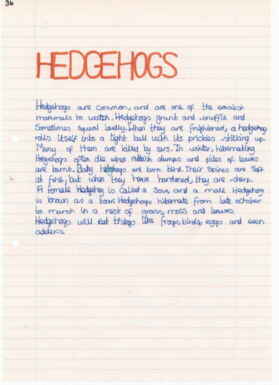 36
HEDGEHOGS
Hedgehogs are common, and are one of the easiest
mammals to watch. Hedgehogs grunt and snuffle and
Sometimes squeal loudly. When they are frightened, a hedgehog
rolls itself into a tight ball with its prickles sticking up.
Many of them are killed by cars. In winter, hibernating
Hedgehogs often die when rubbish dumps and piles of leaves
are burnt. Baby hedgehogs are born blind. Their Spines are Soft
at first, but when they have hardened, they are sharp.
A female Hedgehog is called a Sow, and a male Hedgehog
is known as a boar. Hedgehogs hibernate from late october
to march in a nest of grass, moss and leaves.
Hedgehogs will eat things like frogs, birds, eggs and even
adders.